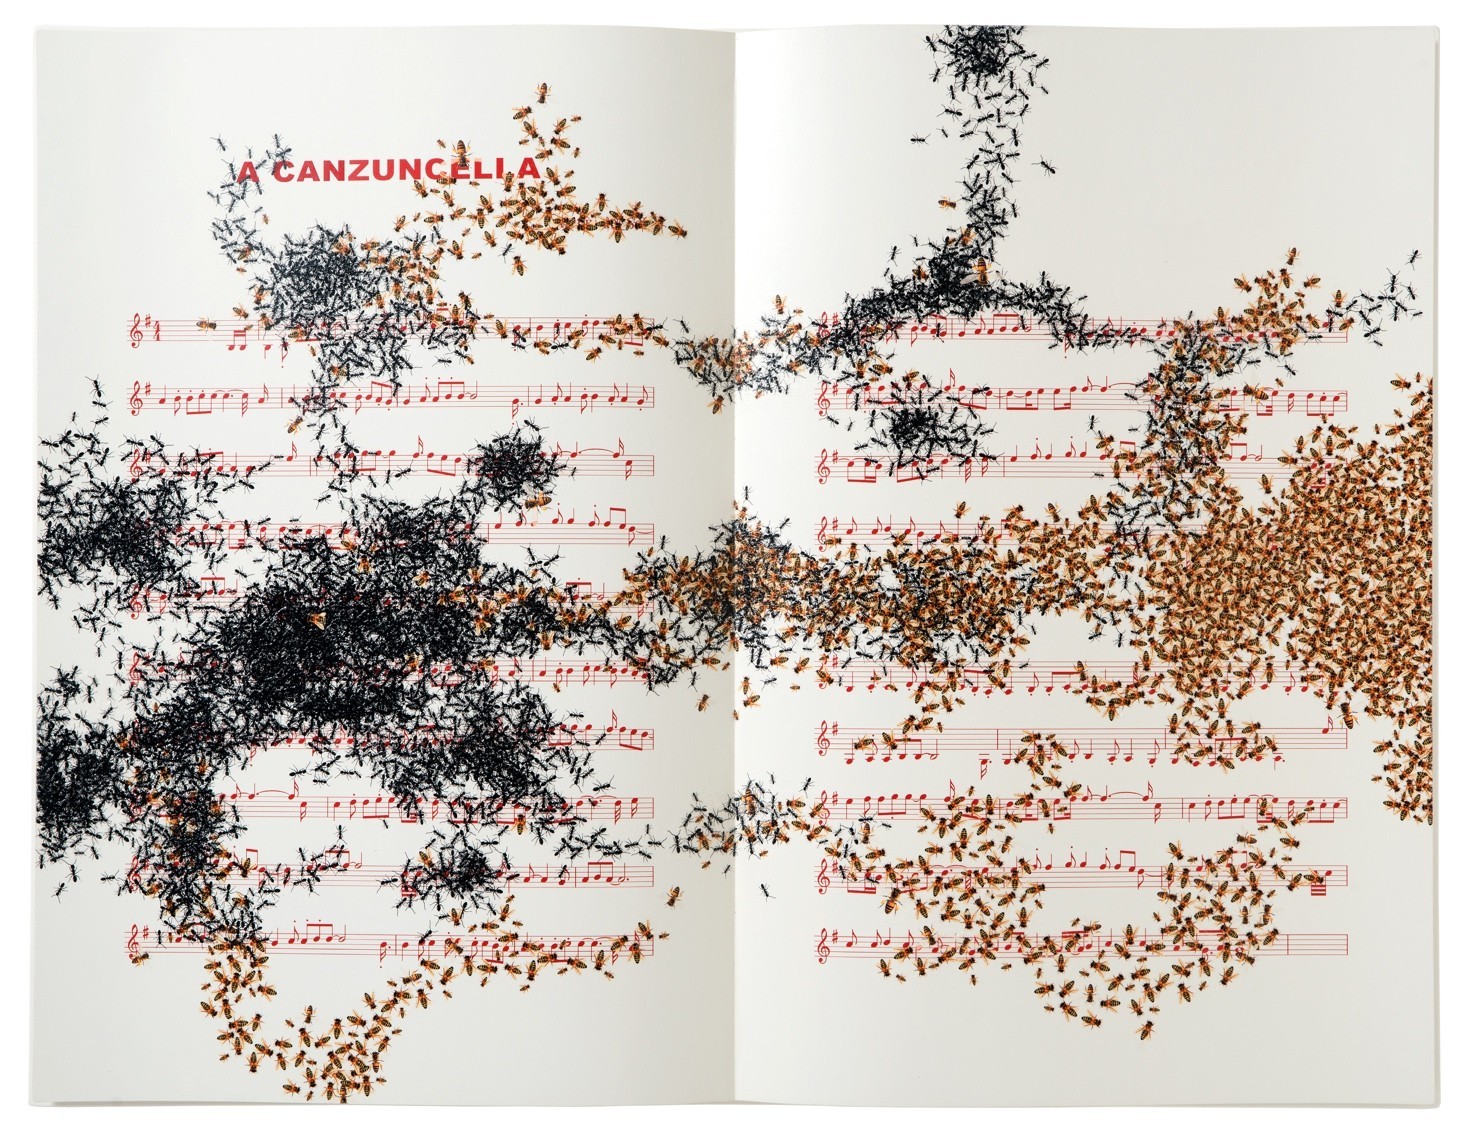 A CANZUNCELLA